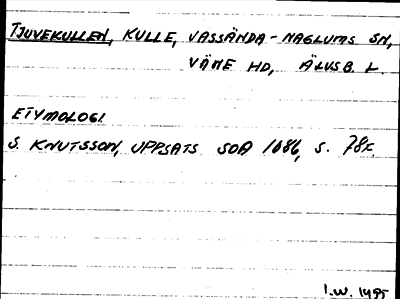 TJUVEKULLEN, KULLE, VASSÄNDA-NAGLUMS SN,
VÄNE HD, ÄLVSB. L.
ETYMOLOGI
S. KNUTSSON, UPPSATS SOA 1686, S. 78F.
I.W. 1495